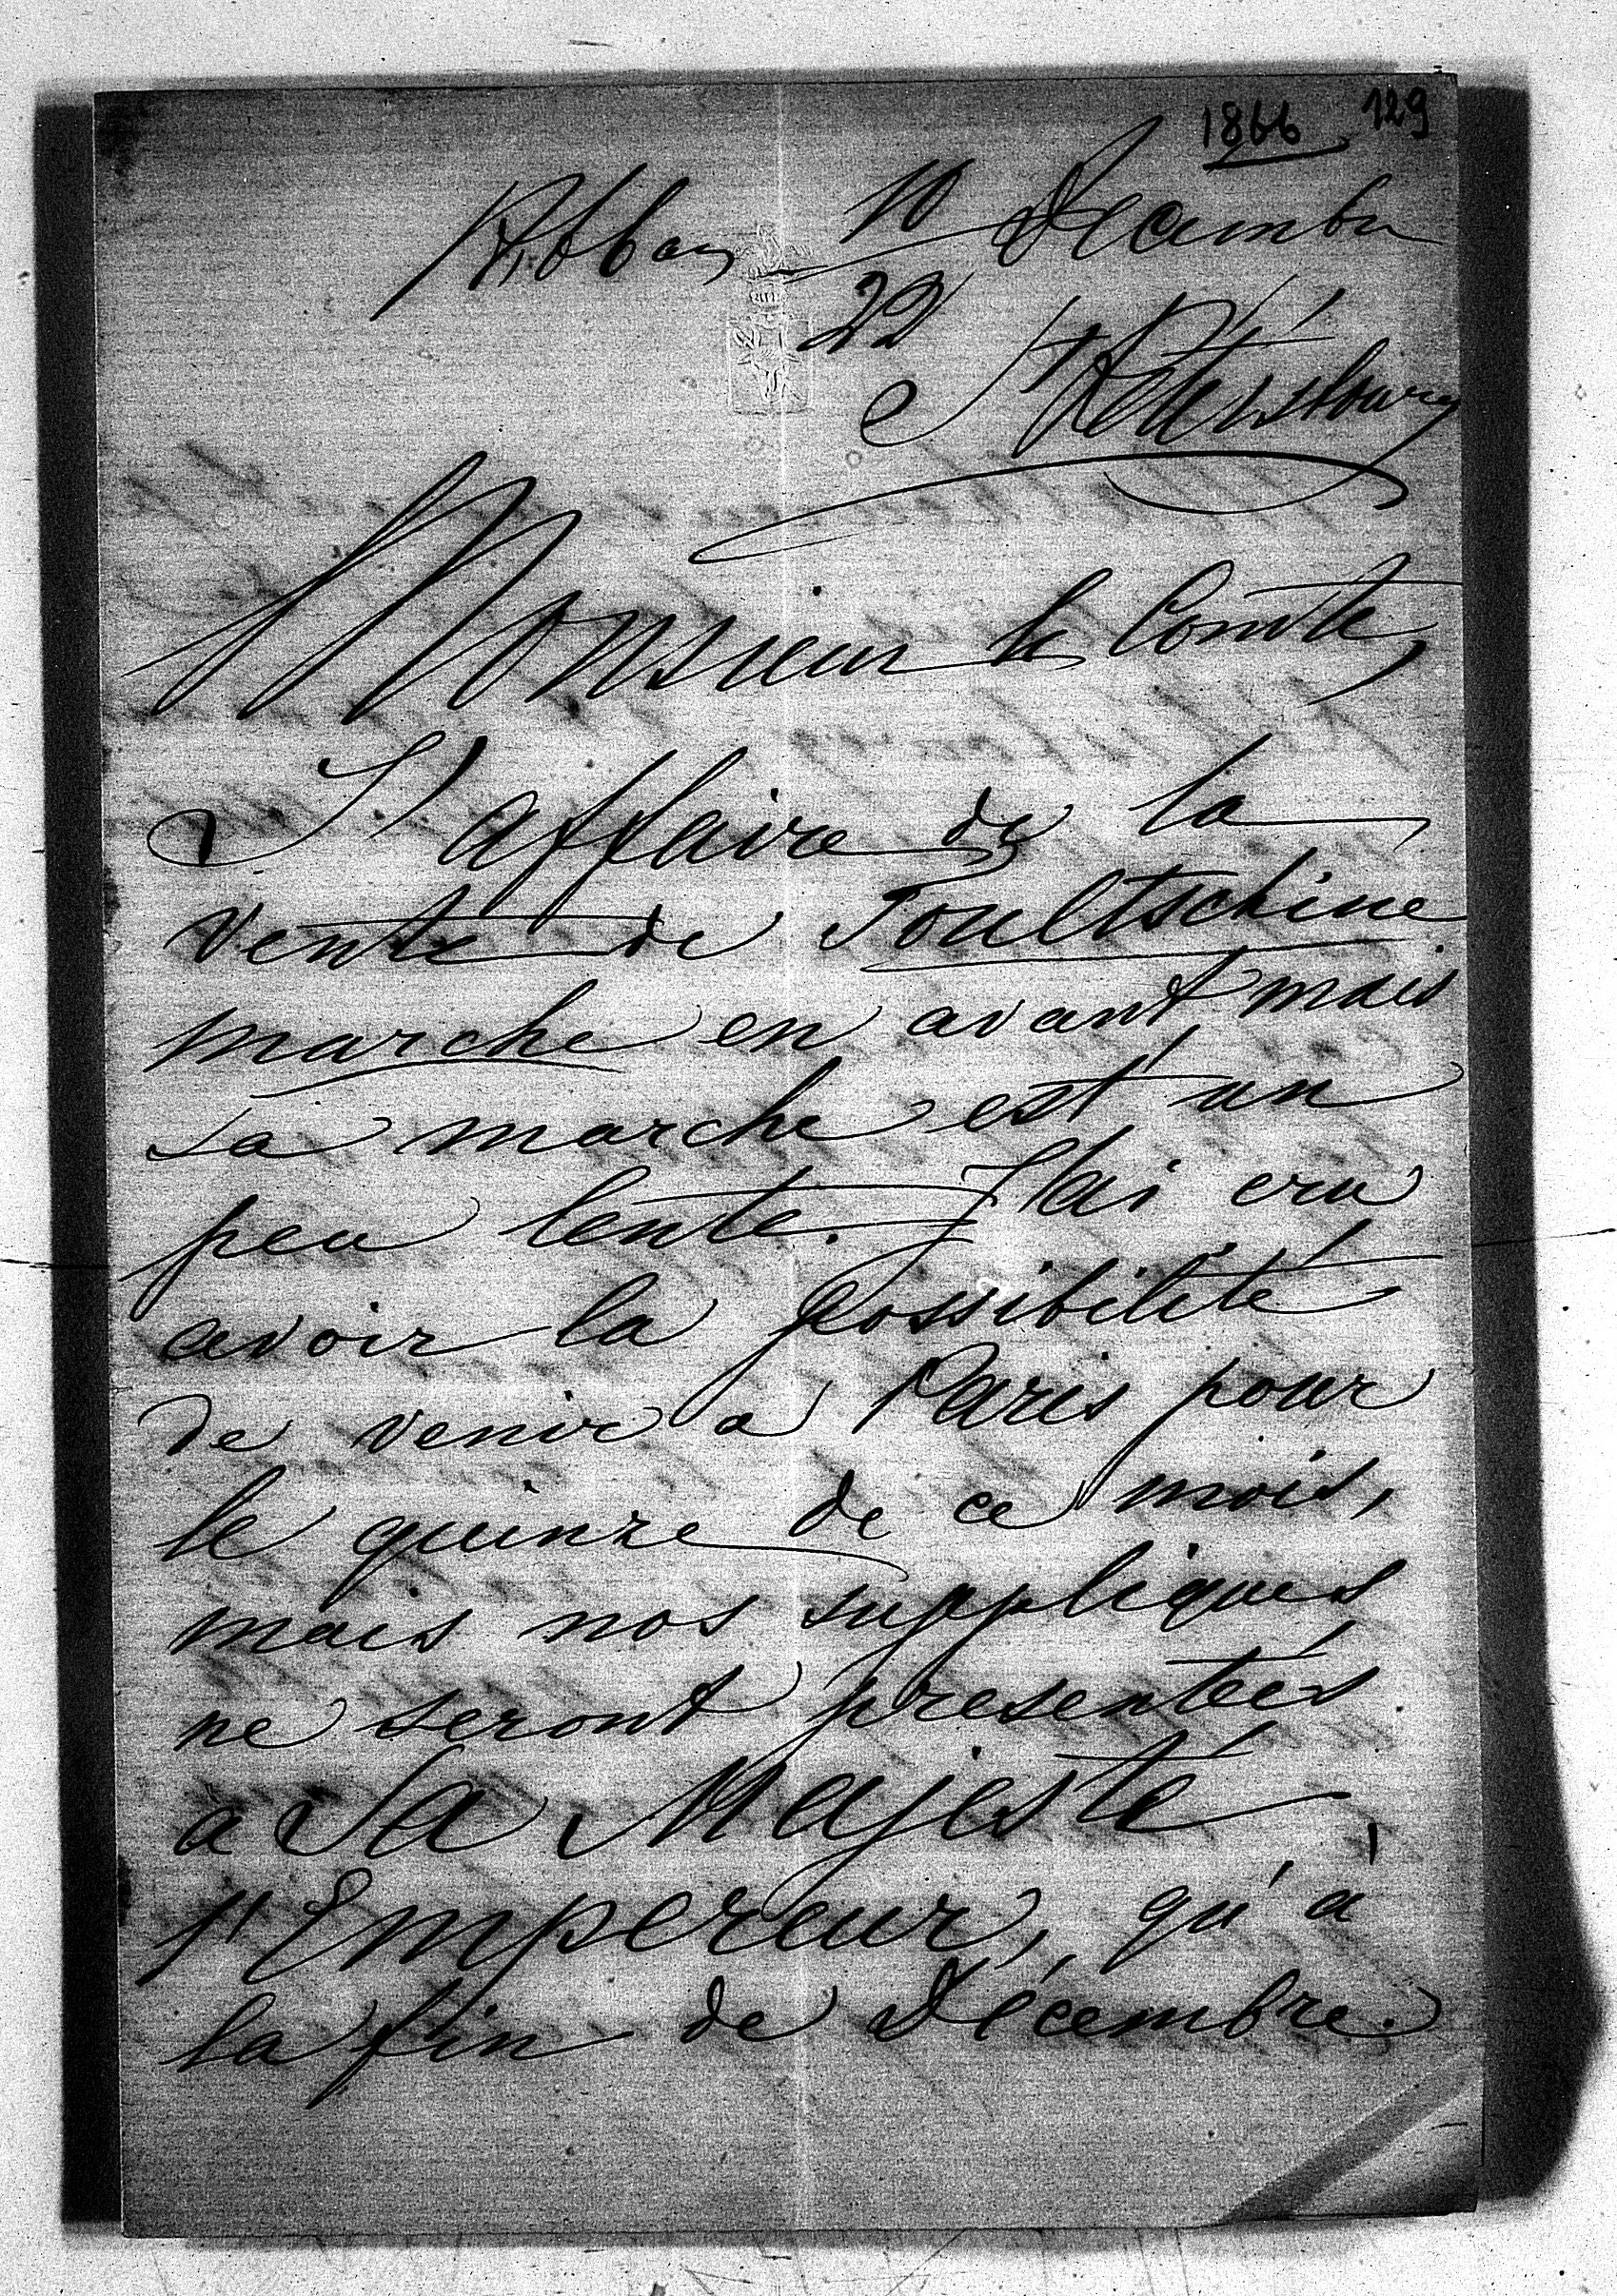 1866 129
10 Decembre
22
St Pétersbourg
Monsieur le Comte,
L'affaire de la
vente de Toultschine
marche en avant, mais
sa marche est un
peu lente. J'ai cru
avoir la possibilité
de venir a Paris pour
le quinze de ce mois,
mais nos suppliques
ne seront presentées
a Sa Majesté
l'Empereur, qu'à
la fin de Décembre.